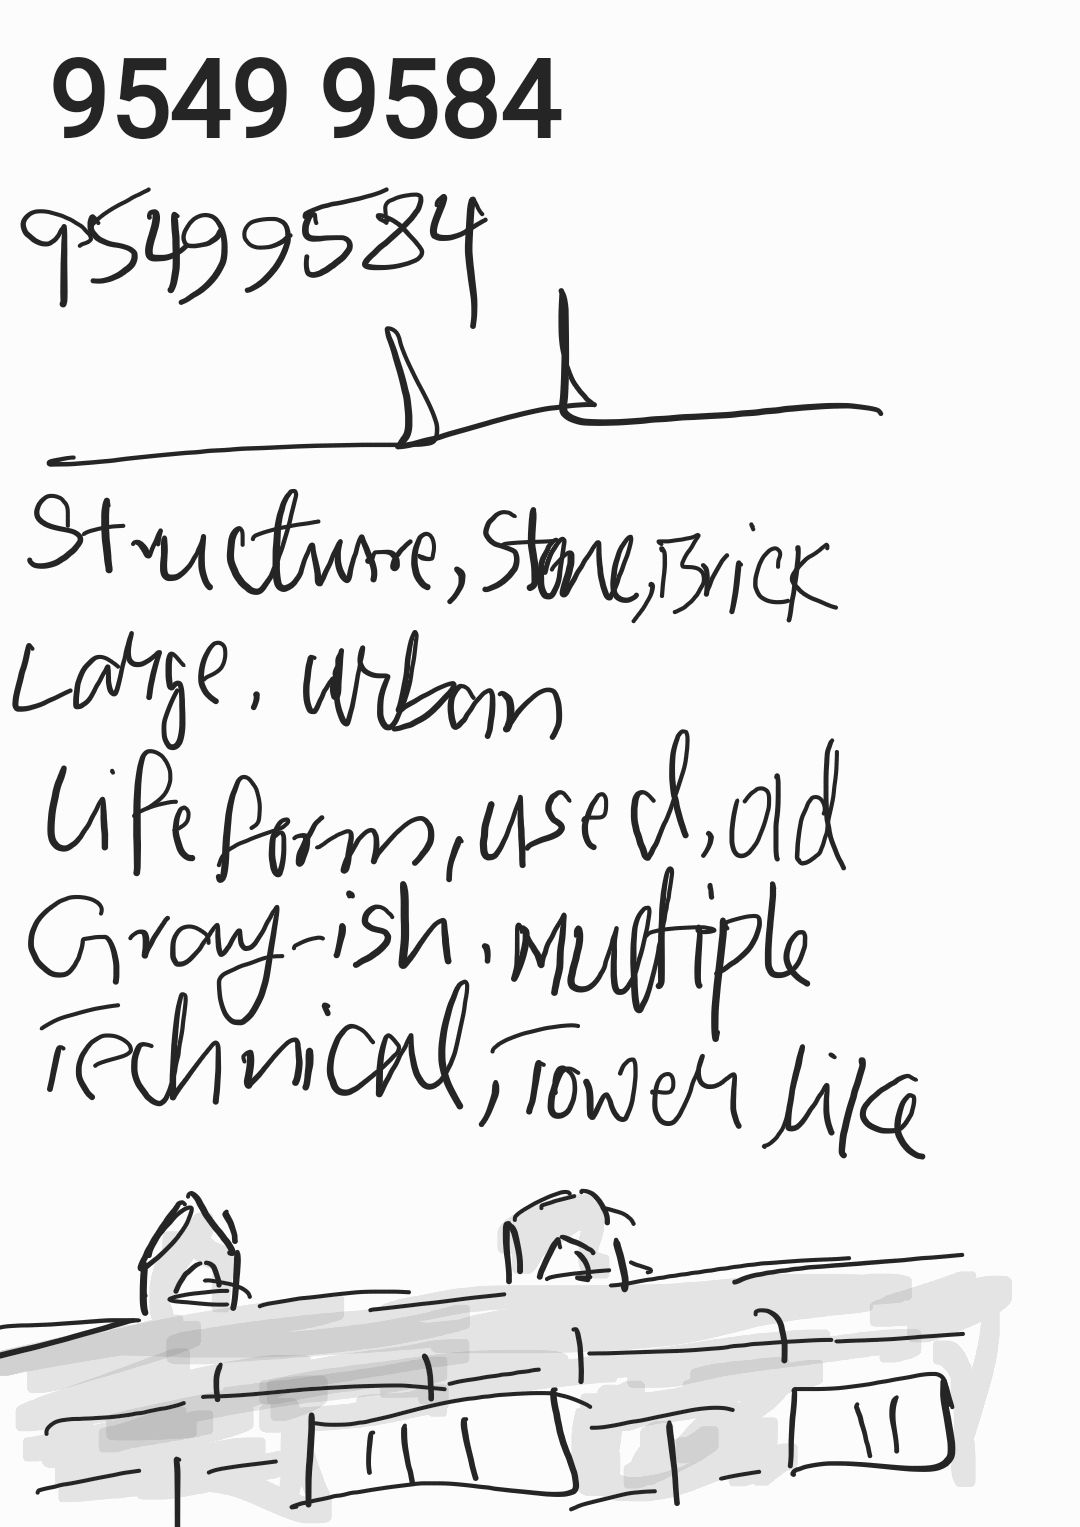 9549 9584
95499584
Structure, Stone, Brick
Large, urban
Life form, used, old
Gray-ish, Multiple
Technical, Tower like